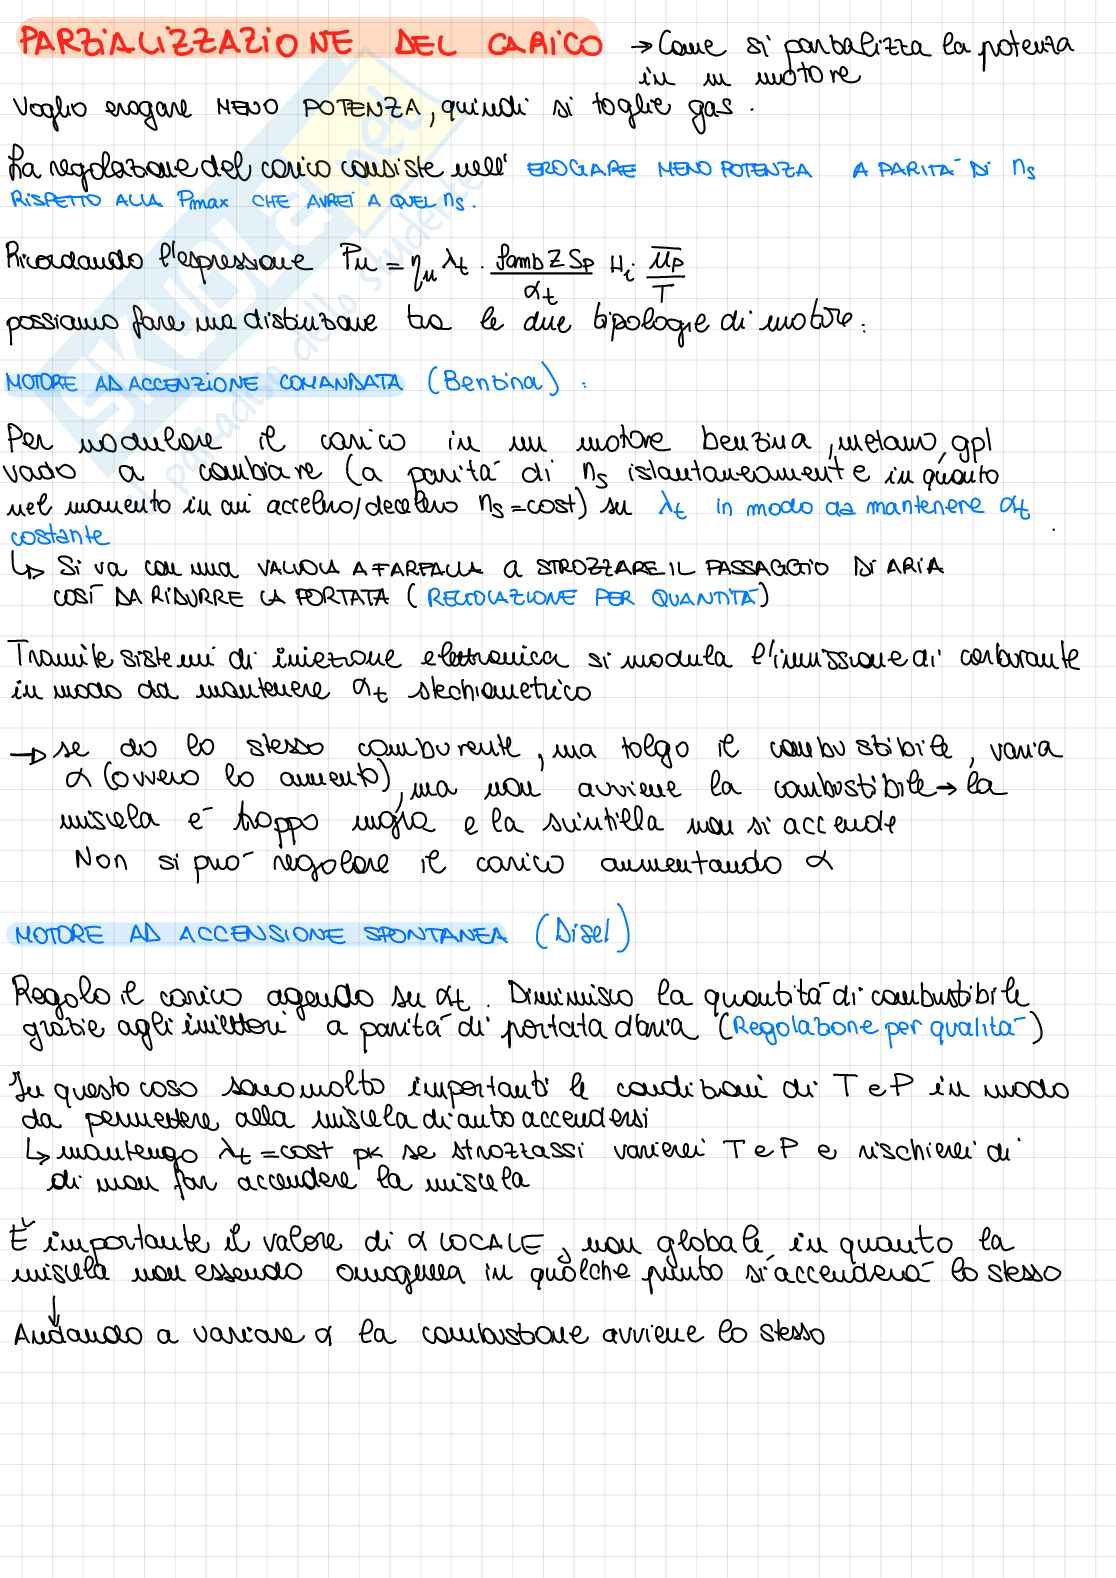 PARZIALIZZAZIONE DEL CARICO → Come si parzializza la potenza
in un motore
Voglio erogare MENO POTENZA, quindi si toglie gas.
La regolazione del carico consiste nell' EROGARE MENO POTENZA A PARITÀ DI ns
RISPETTO ALLA Pmax CHE AVREI A QUEL ns.
Ricordando l'espressione Pu = ηu λt · ρamb Z Sp / αt Hi ūp / τ
possiamo fare una distinzione tra le due tipologie di motore:
MOTORE AD ACCENZIONE COMANDATA (Benzina):
Per modulare il carico in un motore benzina, metano, gpl
vado a cambiare (a parità di ns istantaneamente in quanto
nel momento in cui accelero/decelero ns = cost) su λt in modo da mantenere αt
costante
↳ Si va con una VALVOLA A FARFALLA A STROZZARE IL PASSAGGIO DI ARIA
COSÌ DA RIDURRE LA PORTATA (REGOLAZIONE PER QUANTITÀ)
Tramite sistemi di iniezione elettronica si modula l'imissione di carburante
in modo da mantenere αt stechiometrico
→ se do lo stesso comburente, ma tolgo il combustibile, varia
α (ovvero lo aumento), ma non avviene la combustibile → la
miscela è troppo magra e la scintilla non si accende
Non si può regolare il carico aumentando α
MOTORE AD ACCENSIONE SPONTANEA (Disel)
Regolo il carico agendo su αt. Diminuisco la quantità di combustibile
grazie agli iniettori a parità di portata d'aria (Regolazione per qualità)
In questo caso sono molto importanti le condizioni di T e P in modo
da permettere alla miscela di auto accendersi
↳ mantengo λt = cost pk se strozzassi varierei T e P e rischierei di
di non far accendere la miscela
È importante il valore di α LOCALE, non globale, in quanto la
miscela non essendo omogenea in qualche punto si accenderà lo stesso
↓
Andando a variare α la combustione avviene lo stesso
SKUOLA.net
paradiso dello studente